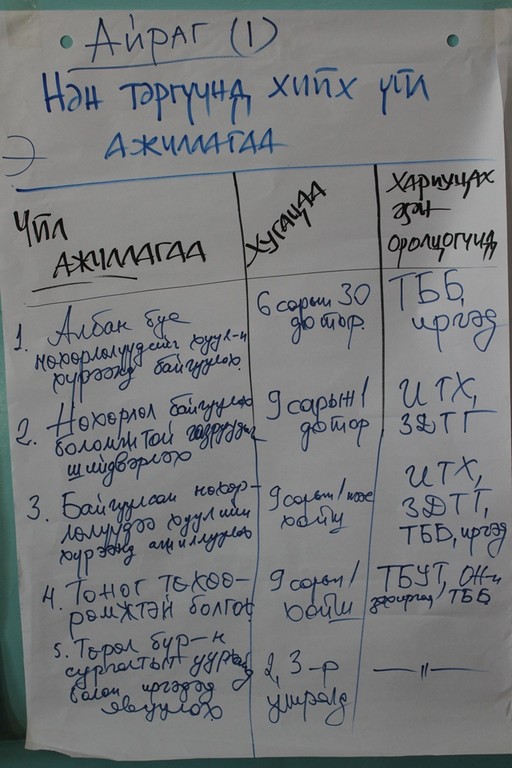 Айраг (1)
Нэн тэргүүнд хийх үйл
ажиллагаа
Үйл
ажиллагаа
Хугацаа
Хариуцах
эзэн
оролцогчид
1. Албан бус
нөхөрлөлүүдийг хуул-н
хүрээнд байгуулах.
6 сарын 30
дотор.
ТББ,
иргэд
2. Нөхөрлөл байгуулах
боломжтой газруудыг
шийдвэрлэх
9 сарын 1
дотор
ИТХ,
ЗДТГ
3. Байгуулсан нөхөр-
лөлүүдээ хуулийн
хүрээнд ажиллуулах
9 сарын 1
хойш
ИТХ,
ЗДТГ,
ТББ, иргэд
4. Тоног төхөө-
рөмжтэй болгох
9 сарын 1
хойш
ТБУГ, ОН-н
ТББ
5. Төрөл бүр-н
сургалтыг
болон иргэдэд
явуулах
2, 3-р
улиралд
—"—